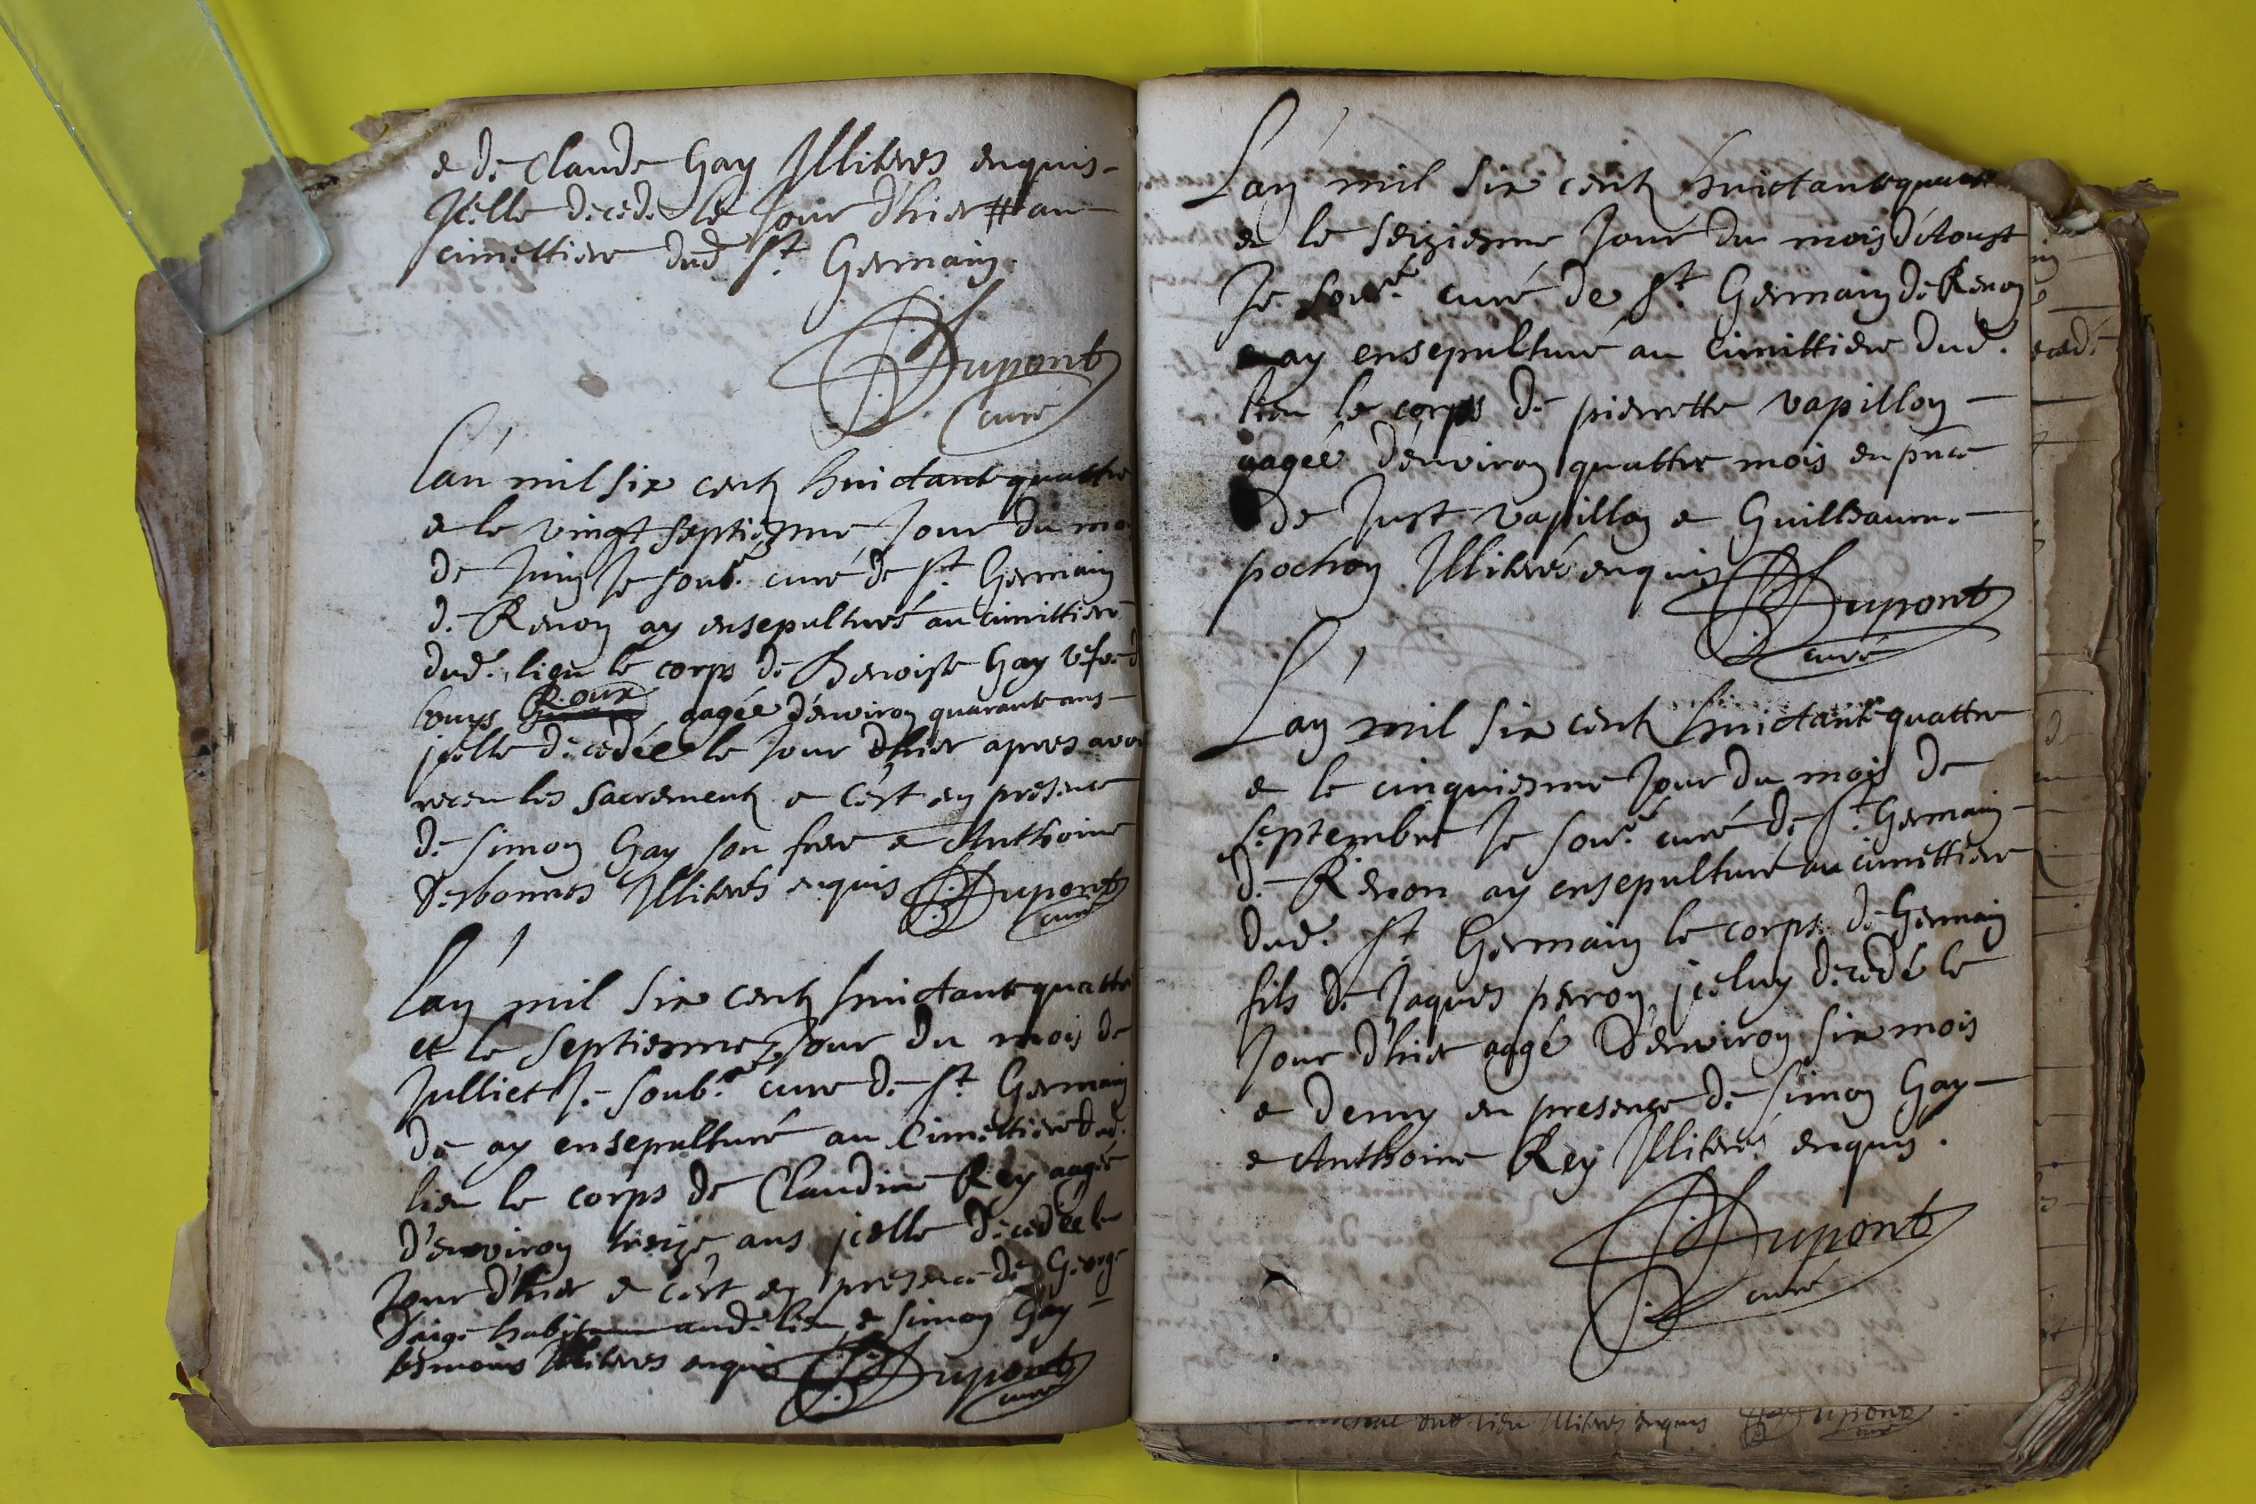 e de Claude Gay Illiterés enquis
Jcelle decedé le Jour d'hier # au
cimettiere dud St Germain.
Dupont
curé
L'an mil six centz huictante quattre
e le vingt septiesme Jour du moi
de Juin Je soubné curé de St Germain
de Renon ay ensepulturé au cimittiere
dud. lieu le corps de Benoiste Gay vefve d
Louys Roux aagée d'environ quarante ans
jcelle decedée le Jour d'hier apres avoir
receu les sacrementz e c'est en presence
de Simon Gay son frere e Anthoine
Desbonnes Illiterés enquis Dupont
curé
L'an mil six centz huictante quattre
et le septiesme Jour du mois de
Julliet Je soubné curé de St Germain
de ay ensepulturé au Cimettiere dud.
lieu le corps de Claudine Rey aagée
d'environ treize ans jcelle decedée le
Jour d'hier e c'est en presence de George
habi aud. lieu e Simon Gay
tesmoins Illiterés enquis Dupont
curé
L'an mil six centz huictante quattre
e le seiziesme Jour du mois d'Aoust
Je souné curé de St Germain de Renon
ay ensepulturé au cimittiere dud.
lieu le corps de pierrette vapillon
aagée d'environ quattre mois en pnce
de Just vapillon e Guilleaume
pochon Illiterés enquis Dupont
curé
L'an mil six centz huictante quattre
e le cinquiesme Jour du mois de
septembre Je souné curé de St Germain
de Renon ay ensepulturé au cimettiere
dud. St Germain le corps de Germain
fils de Jaques perron jceluy decedé le
Jour d'hier aagé d'environ six mois
e demy en presence de Simon Gay
e Anthoine Rey Illiterés enquis.
Dupont
curé
lieu Illiterés enquis Dupont
curé